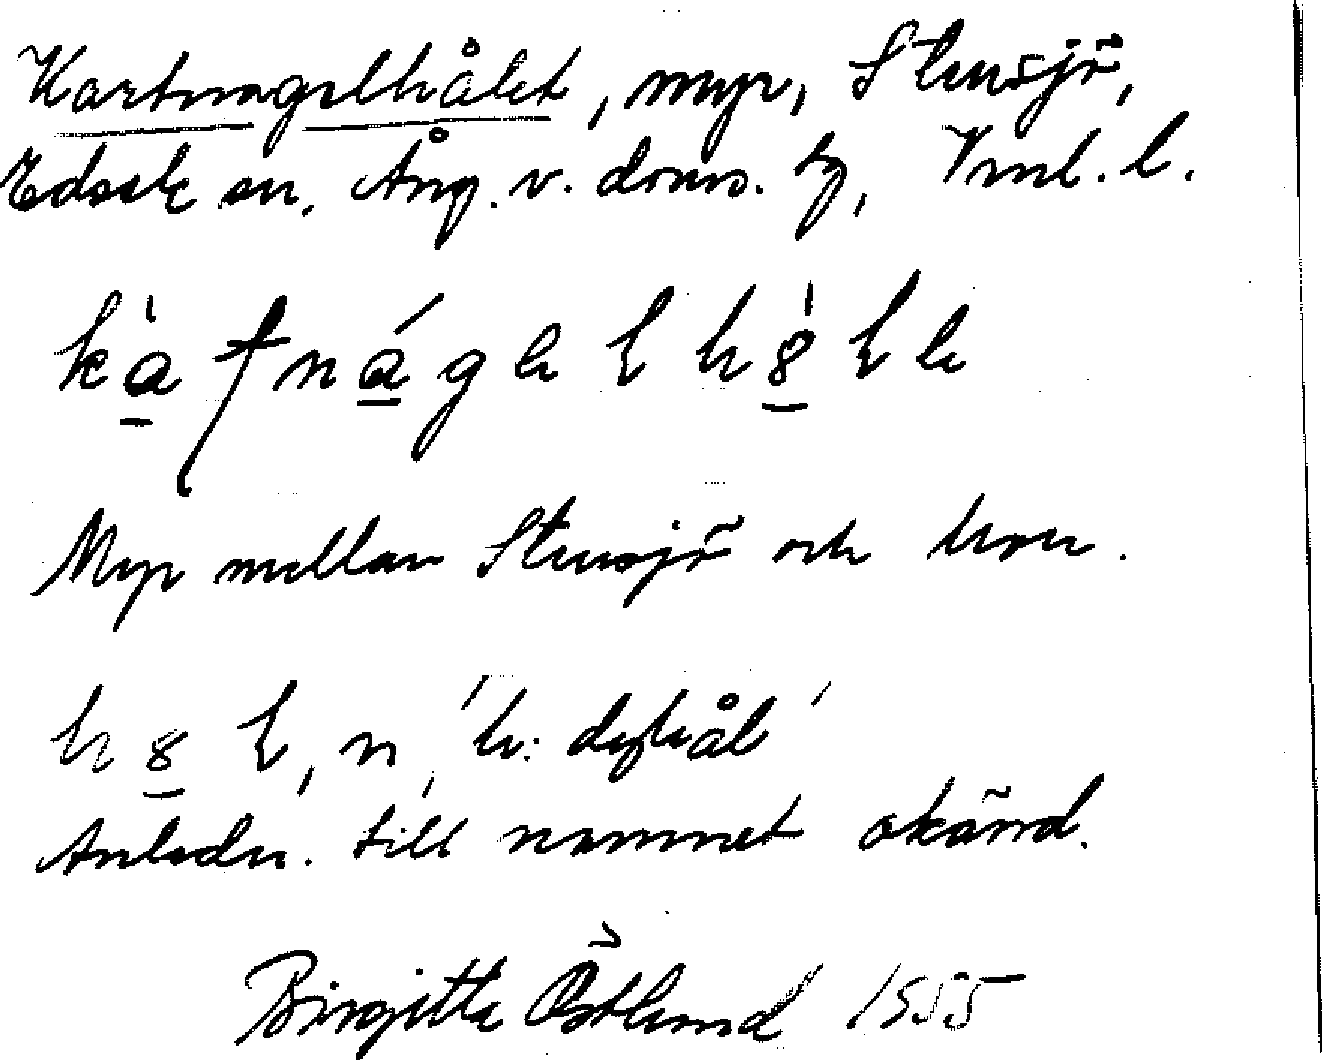 Kartnagelhålet, myr, Stensjö,
Edsele sn, Ång. v. doms. tg, Vnl. l.
Myr mellan Stensjö och
n, 'h: dythål'
Anledn. till namnet okänd.
Birgitta Östlund 1955